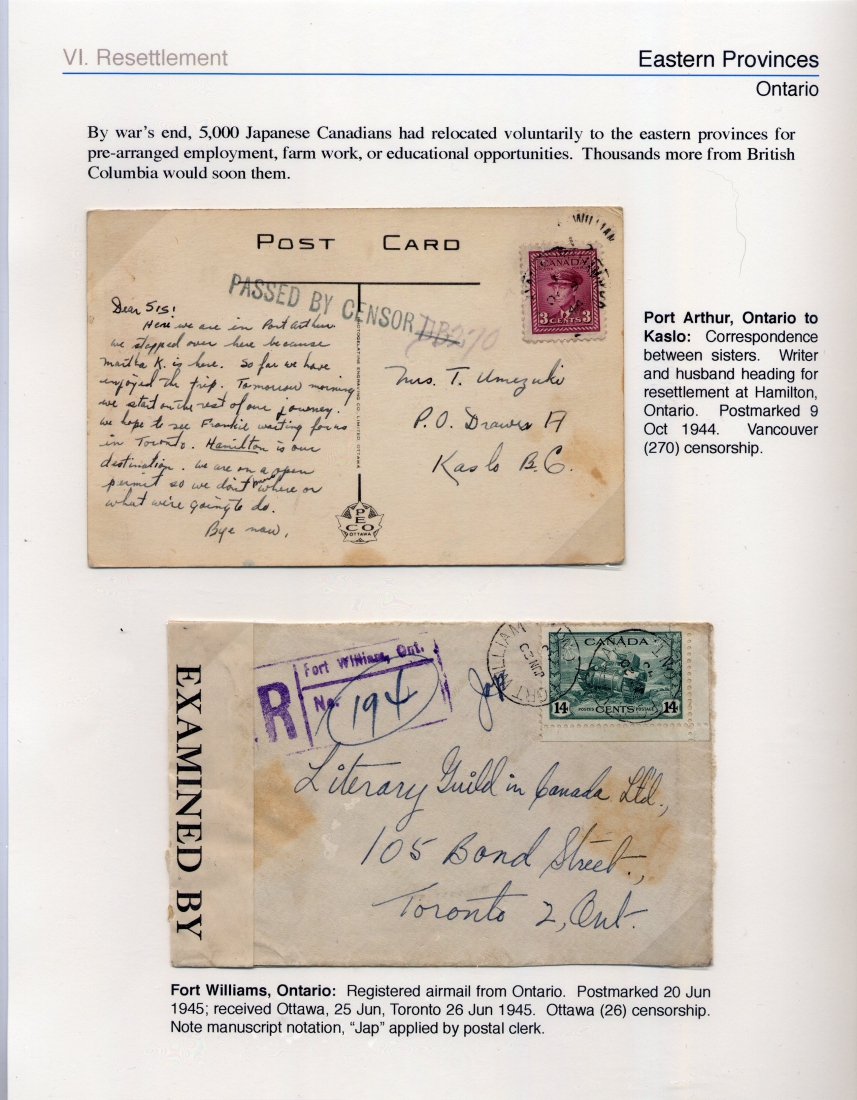 VI. Resettlement
Eastern Provinces
Ontario
By war's end, 5,000 Japanese Canadians had relocated voluntarily to the eastern provinces for
pre-arranged employment, farm work, or educational opportunities. Thousands more from British
Columbia would soon them.
POST CARD
WILLIAM
CANADA
3 CENTS 3
PASSED BY CENSOR
DB270
Dear Sis!
Here we are in Port Arthur
we stopped over here because
Martha K. is here. So far we have
enjoyed the trip. Tomorrow morning
we start on the rest of our journey.
we hope to see Frankie waiting for us
in Toronto. Hamilton is our
destination. we are on a open
permit so we don't where or
what we're going to do.
Bye now.
PHOTOGELATINE ENGRAVING CO. LIMITED, OTTAWA
PECO
OTTAWA
Mrs. T. Umezuki
P.O. Drawer A
Kaslo B.C.
Port Arthur, Ontario to
Kaslo: Correspondence
between sisters. Writer
and husband heading for
resettlement at Hamilton,
Ontario. Postmarked 9
Oct 1944. Vancouver
(270) censorship.
EXAMINED BY
R
Fort William, Ont.
No.
194
Jap
FORT WILLIAM
CANADA
14 POSTES CENTS POSTAGE 14
Literary Guild in Canada Ltd.,
105 Bond Street,
Toronto 2, Ont.
Fort Williams, Ontario: Registered airmail from Ontario. Postmarked 20 Jun
1945; received Ottawa, 25 Jun, Toronto 26 Jun 1945. Ottawa (26) censorship.
Note manuscript notation, "Jap" applied by postal clerk.